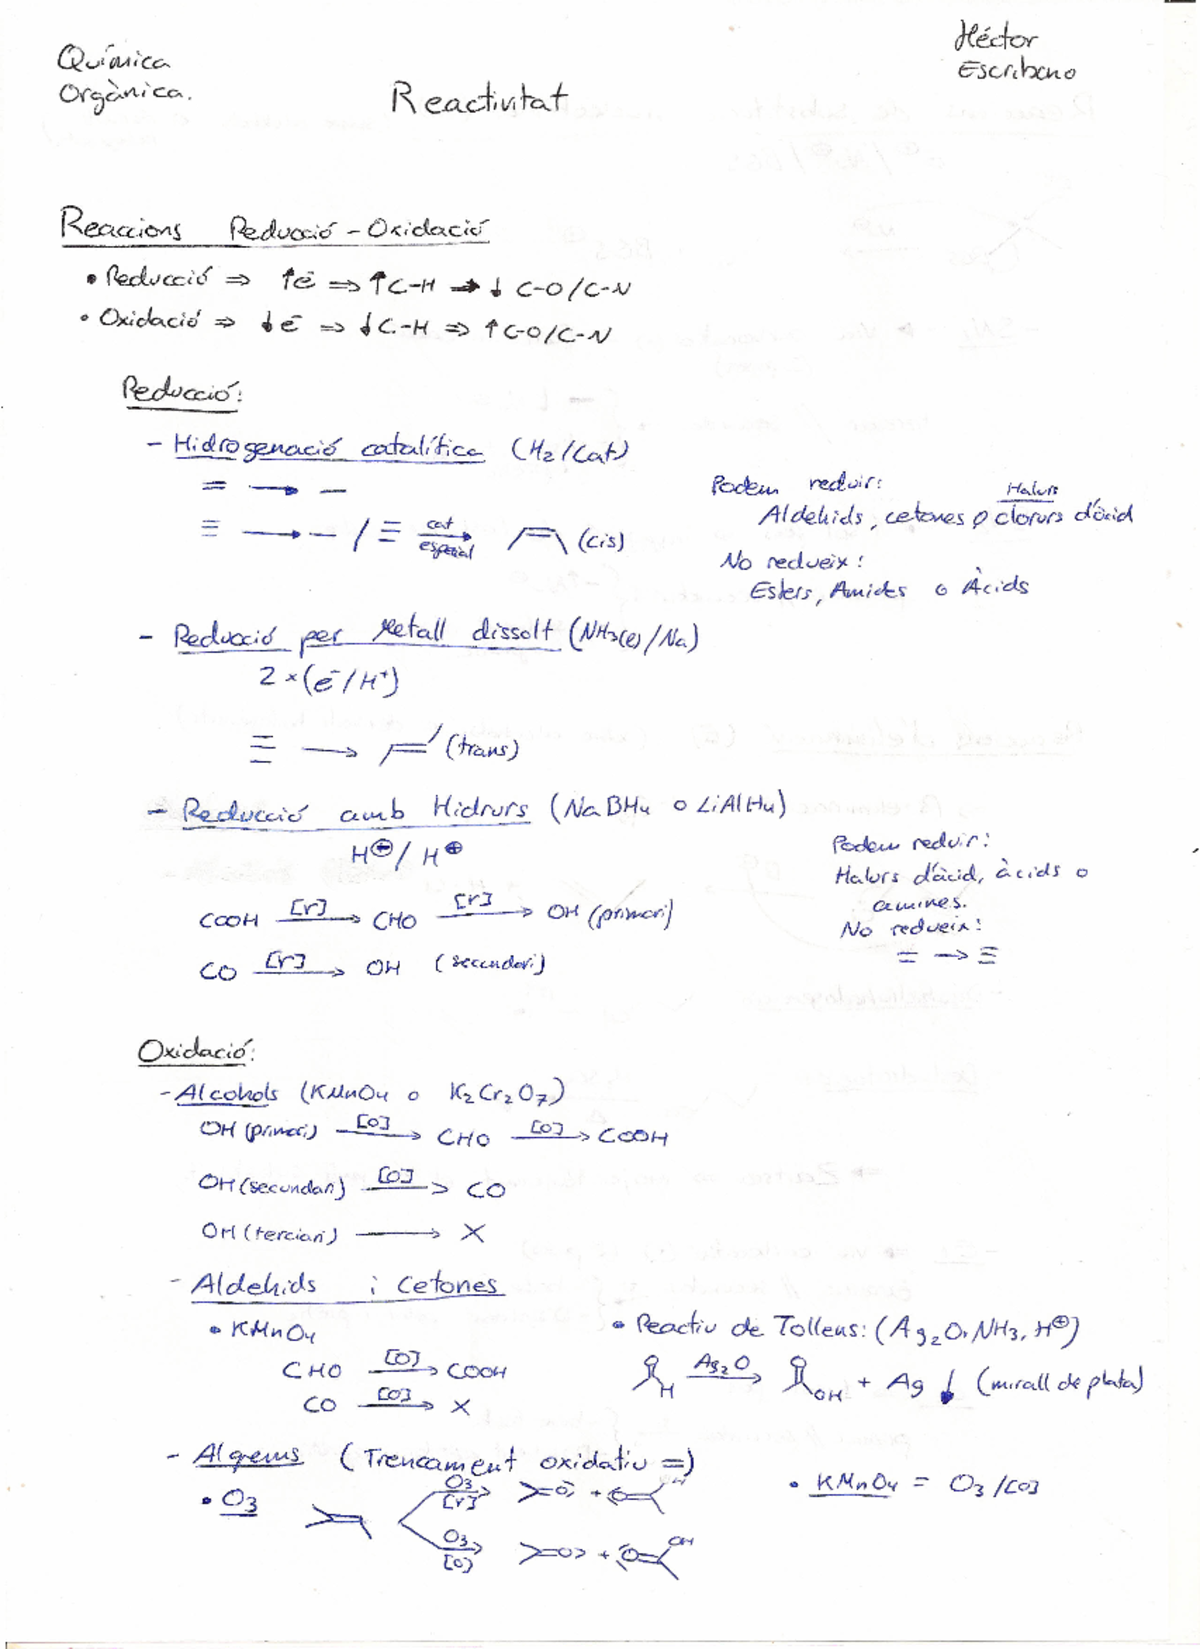 Química
Orgànica.
Reactivitat
Héctor
Escribano
Reaccions Reducció - Oxidació
• Reducció ⇒ ↑e⁻ ⇒ ↑C-H → ↓ C-O/C-N
• Oxidació ⇒ ↓e⁻ ⇒ ↓C-H ⇒ ↑C-O/C-N
Reducció:
- Hidrogenació catalítica (H2/Cat)
= → -
≡ → - / ≡ cat especial → (cis)
Podem reduir:
Halurs
Aldehids, cetones o clorurs d'àcid
No redueix:
Esters, Amides o Àcids
- Reducció per Metall dissolt (NH3(l)/Na)
2 × (e⁻/H⁺)
≡ → (trans)
- Reducció amb Hidrurs (NaBH4 o LiAlH4)
H⊖ / H⊕
COOH [r] → CHO [r] → OH (primari)
CO [r] → OH (secundari)
Podem reduir:
Halurs d'àcid, àcids o
amines.
No redueix:
= → ≡
Oxidació:
- Alcohols (KMnO4 o K2Cr2O7)
OH (primari) [O] → CHO [O] → COOH
OH (secundari) [O] → CO
OH (terciari) → X
- Aldehids i Cetones
• KMnO4
CHO [O] → COOH
CO [O] → X
• Reactiu de Tollens: (Ag2O, NH3, H⊕)
O H Ag2O → O OH + Ag ↓ (mirall de plata)
- Alquens (Trencament oxidatiu =)
• O3
O3 [r] → =O +
O3 [O] → =O + O= OH
• KMnO4 = O3/[O]